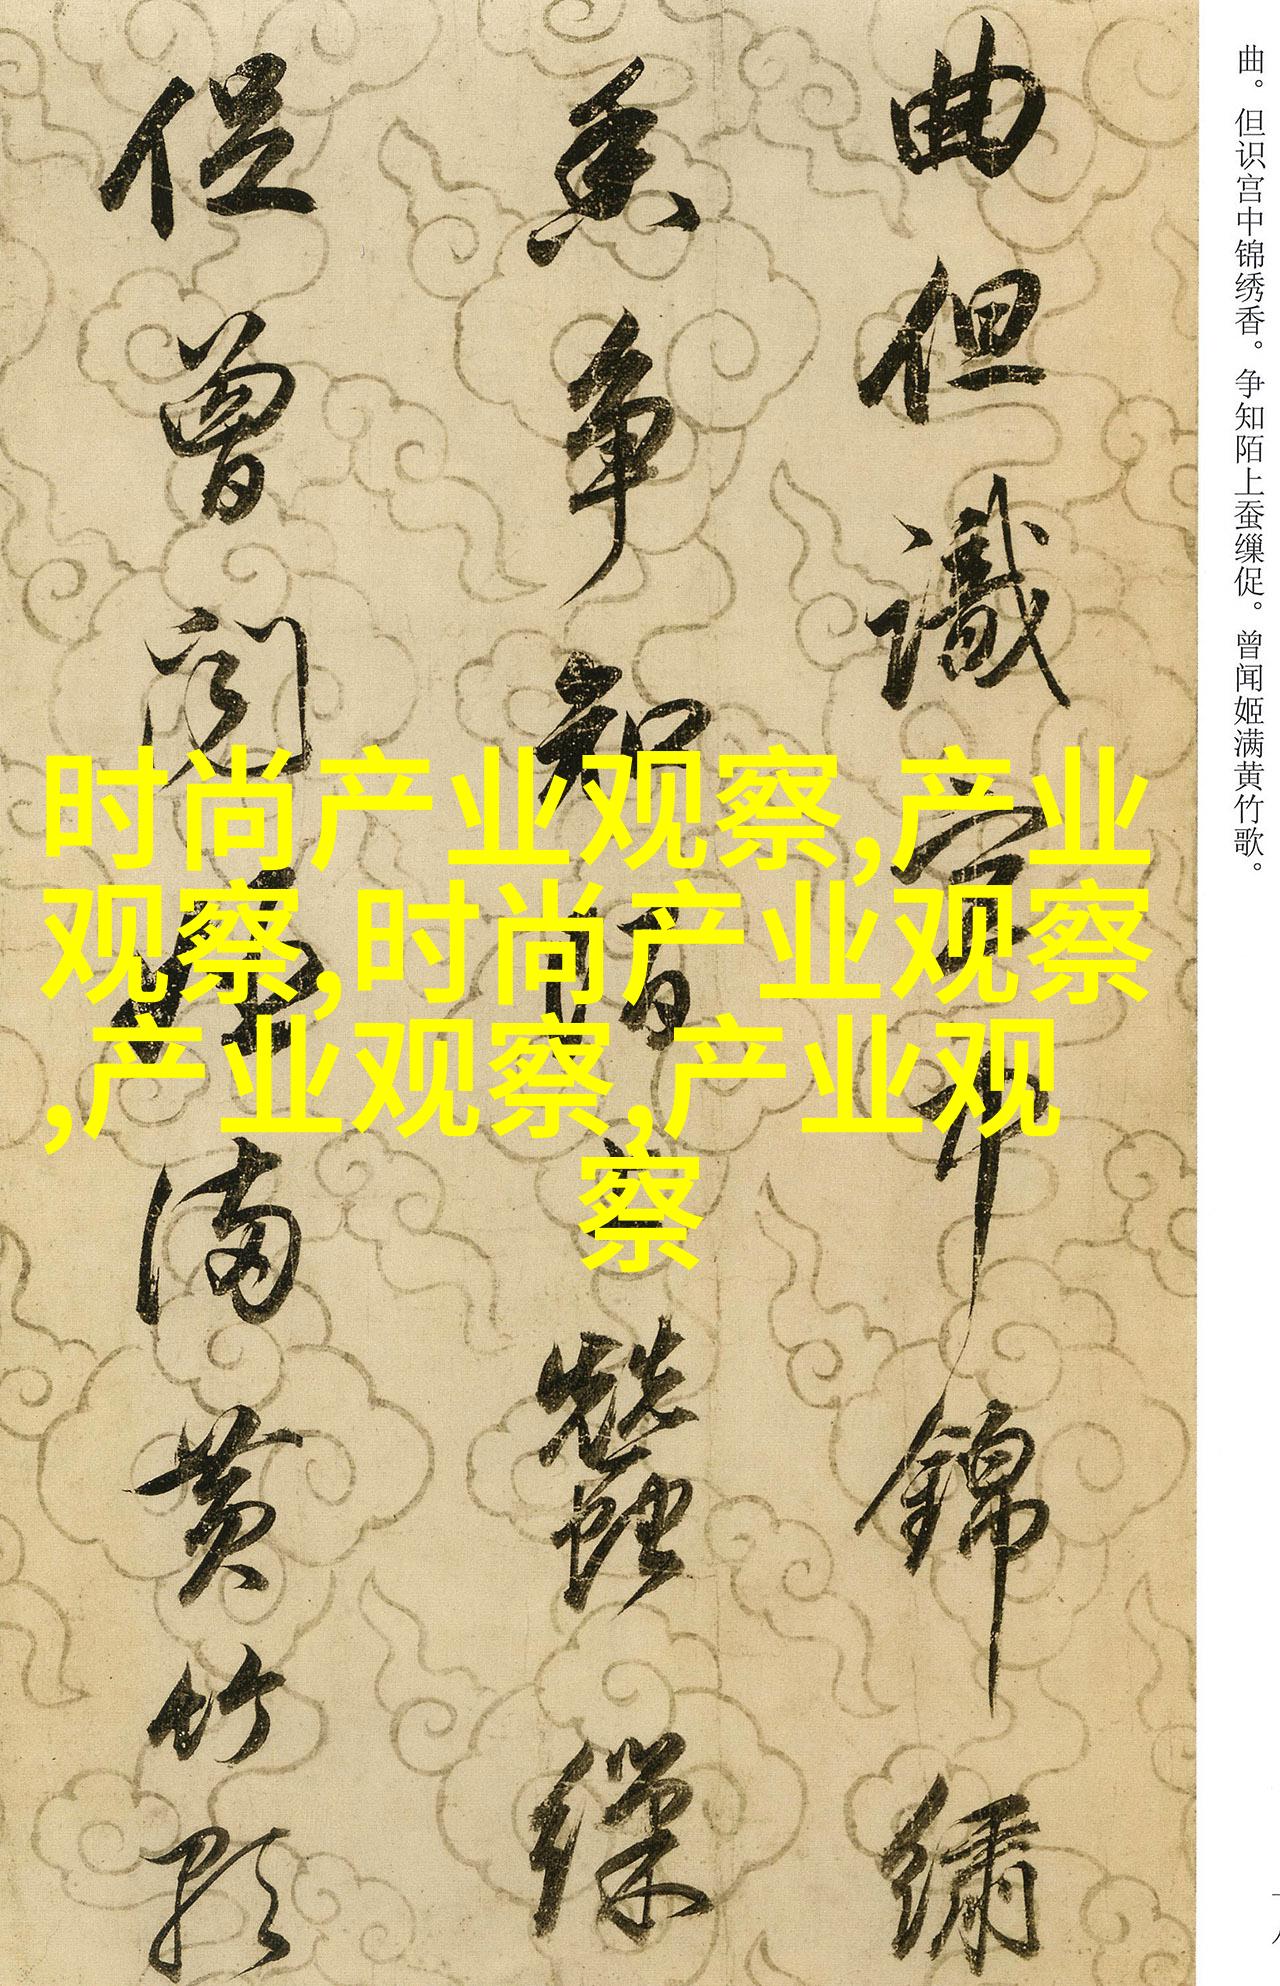 曲。但识宫中锦绣香。争知陌上蚕缫促。曾闻姬满黄竹歌。
曲但識宫中錦繡
香争知陌上蠶繅
促曾闻姬满黄竹歌
时尚产业观察,产业
观察,时尚产业观察
,产业观察,产业观
察